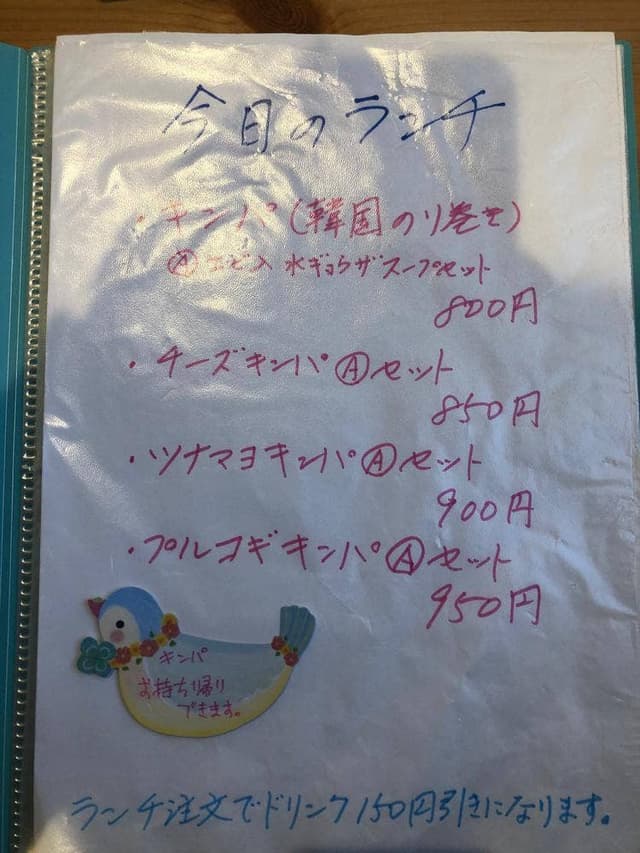 今日のランチ
・キンパ(韓国のり巻き)
Ⓐエビ入水ギョウザスープセット
800円
・チーズキンパⒶセット
850円
・ツナマヨキンパⒶセット
900円
・プルコギキンパⒶセット
950円
キンパ
お持ち帰り
できます。
ランチ注文でドリンク150円引きになります。